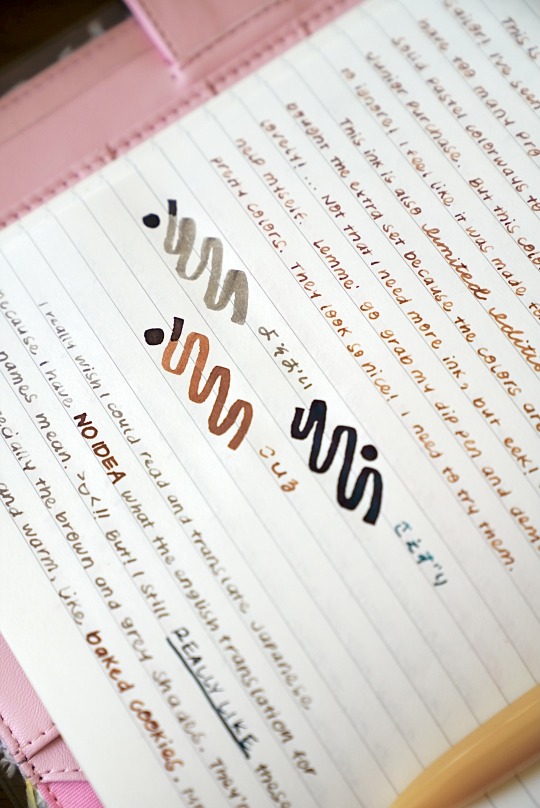 This
Sailor! I've seen
have too many
solid pastel colorways to
junior purchase. But this
to ignore! I feel like it was made
This ink is also limited
bought the extra set because the colors are
lovely!... Not that I need more ink, but eek!
help myself. Lemme' go grab my dip pen and
pretty colors. They look so nice! I need to try them.
よそおい
さえずり
I really wish I could read and translate Japanese
because I have NO IDEA what the english translation for
names mean. >.<!! But! I still REALLY LIKE these
ecially the brown and grey shades. They're
and warm, like baked cookies.